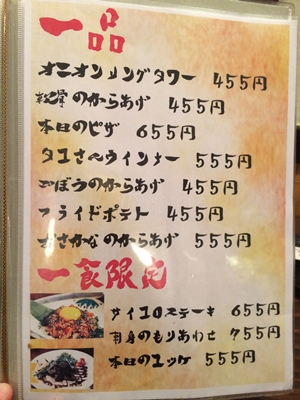 一品
オニオンリングタワー 455円
軟骨のからあげ 455円
本日のピザ 655円
タコさんウインナー 555円
ごぼうのからあげ 455円
フライドポテト 455円
おさかなのからあげ 555円
一食限定
サイコロステーキ 655円
刺身のもりあわせ 755円
本日のユッケ 555円